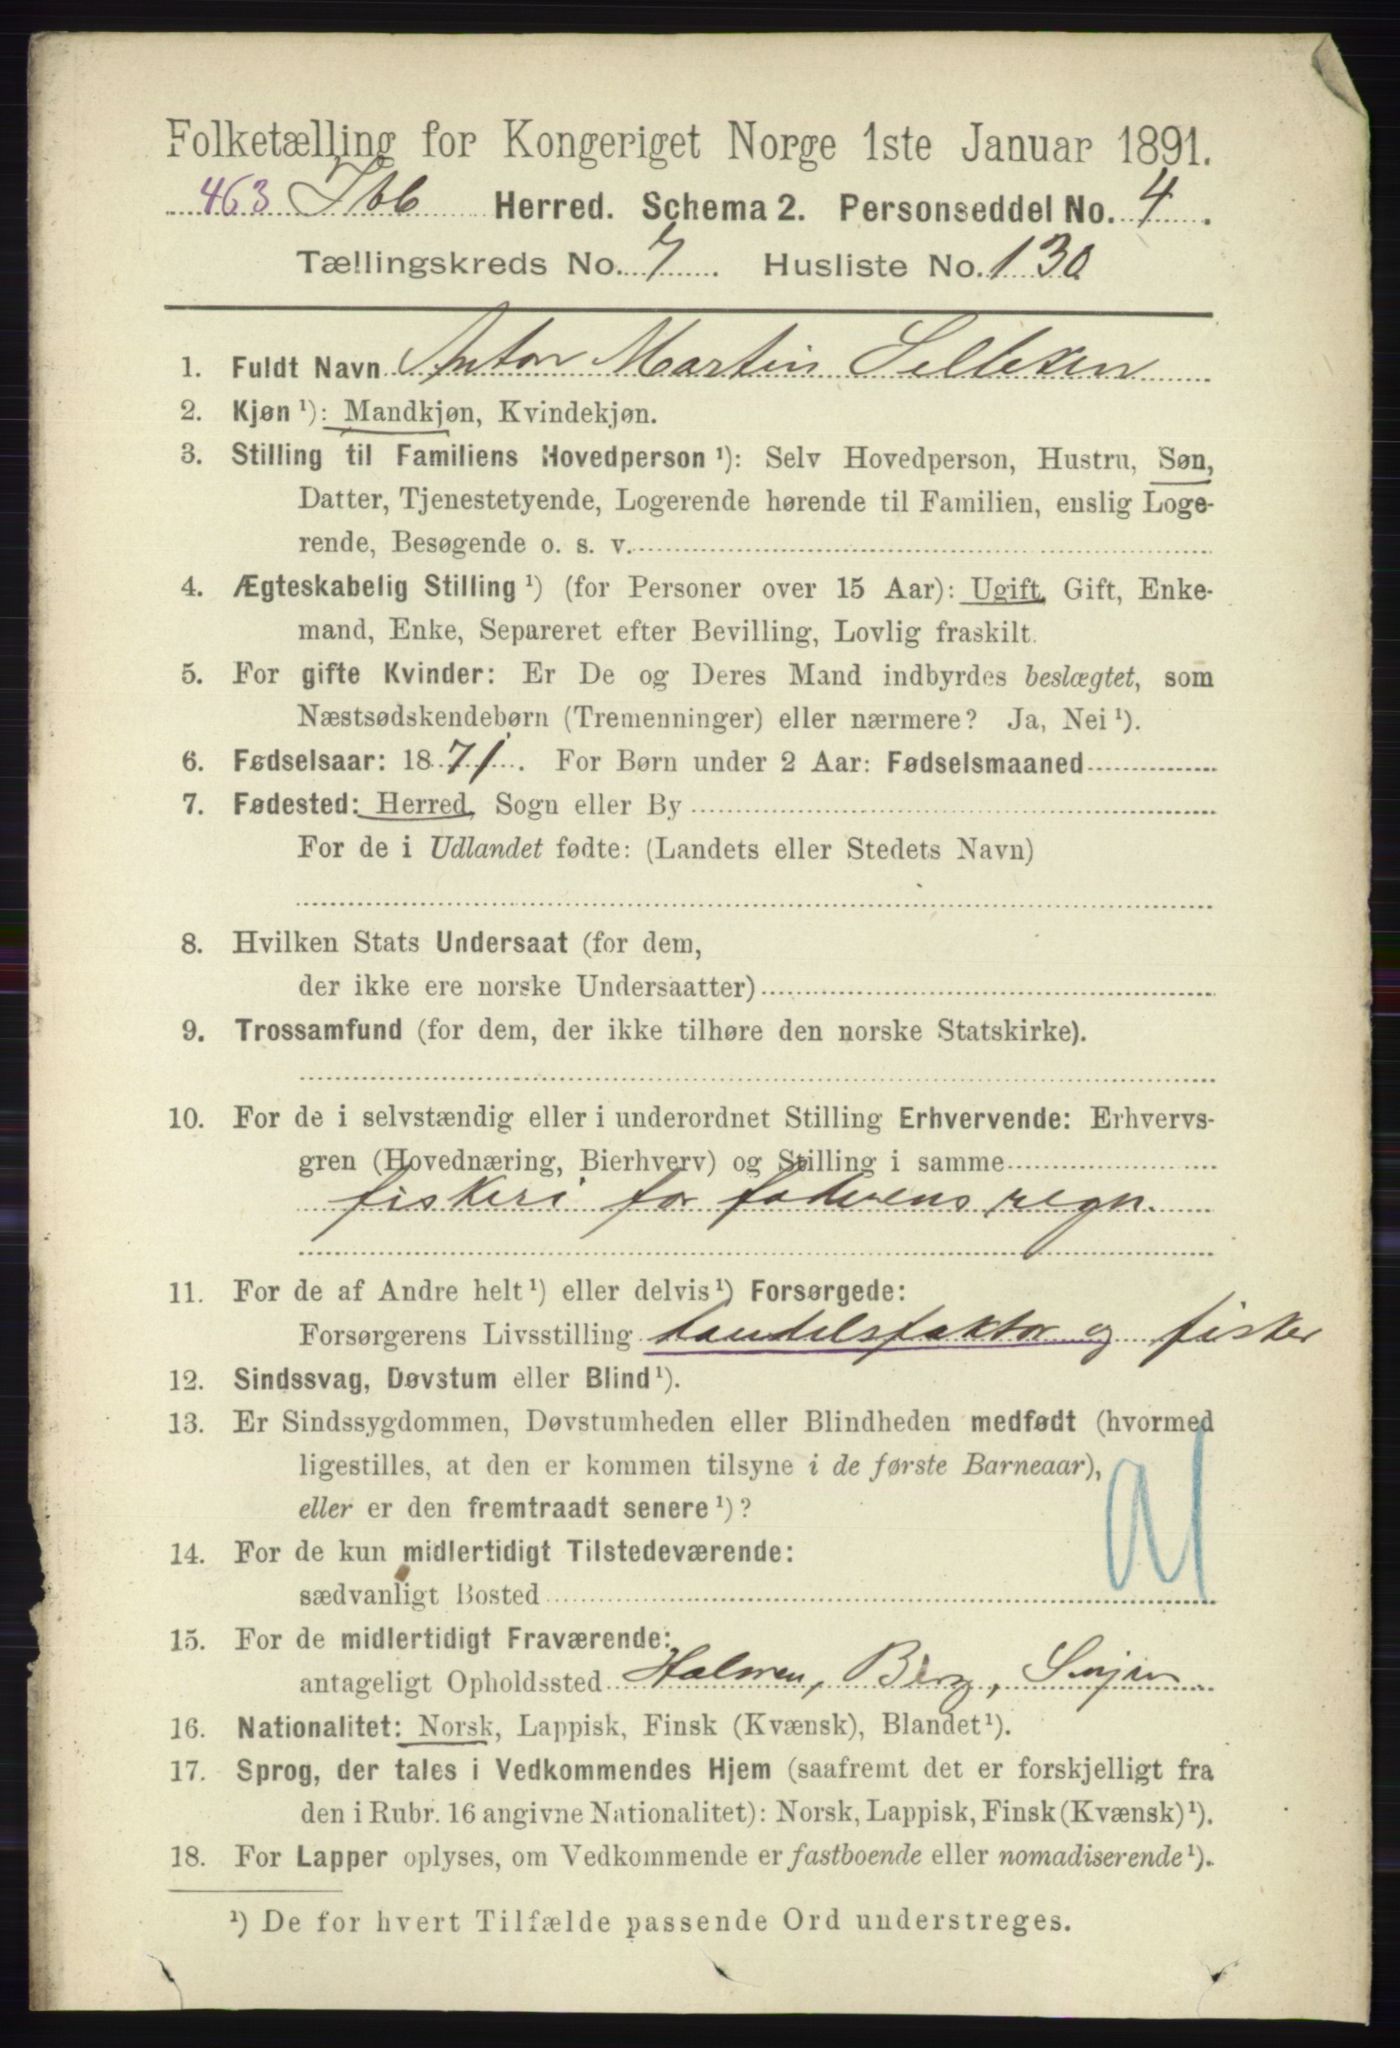 Folketælling for Kongeriget Norge 1ste Januar 1891.
463 Ibb Herred. Schema 2. Personseddel No. 4.
Tællingskreds No. 7. Husliste No. 130
1. Fuldt Navn Anton Martin
2. Kjøn ¹): Mandkjøn, Kvindekjøn.
3. Stilling til Familiens Hovedperson ¹): Selv Hovedperson, Hustru, Søn,
Datter, Tjenestetyende, Logerende hørende til Familien, enslig Loge-
rende, Besøgende o. s. v.
4. Ægteskabelig Stilling ¹) (for Personer over 15 Aar): Ugift, Gift, Enke-
mand, Enke, Separeret efter Bevilling, Lovlig fraskilt.
5. For gifte Kvinder: Er De og Deres Mand indbyrdes beslægtet, som
Næstsødskendebørn (Tremenninger) eller nærmere? Ja, Nei ¹).
6. Fødselsaar: 1871. For Børn under 2 Aar: Fødselsmaaned
7. Fødested: Herred, Sogn eller By
For de i Udlandet fødte: (Landets eller Stedets Navn)
8. Hvilken Stats Undersaat (for dem,
der ikke ere norske Undersaatter)
9. Trossamfund (for dem, der ikke tilhøre den norske Statskirke).
10. For de i selvstændig eller i underordnet Stilling Erhvervende: Erhvervs-
gren (Hovednæring, Bierhverv) og Stilling i samme
fiskeri for faderens regn.
11. For de af Andre helt ¹) eller delvis ¹) Forsørgede:
Forsørgerens Livsstilling handelsfaktor og fisker
12. Sindssvag, Døvstum eller Blind ¹).
13. Er Sindssygdommen, Døvstumheden eller Blindheden medfødt (hvormed
ligestilles, at den er kommen tilsyne i de første Barneaar),
eller er den fremtraadt senere ¹)?
14. For de kun midlertidigt Tilstedeværende:
sædvanligt Bosted
15. For de midlertidigt Fraværende:
antageligt Opholdssted Holmen, Berg, Senjen
16. Nationalitet: Norsk, Lappisk, Finsk (Kvænsk), Blandet ¹).
17. Sprog, der tales i Vedkommendes Hjem (saafremt det er forskjelligt fra
den i Rubr. 16 angivne Nationalitet): Norsk, Lappisk, Finsk (Kvænsk) ¹).
18. For Lapper oplyses, om Vedkommende er fastboende eller nomadiserende ¹).
¹) De for hvert Tilfælde passende Ord understreges.